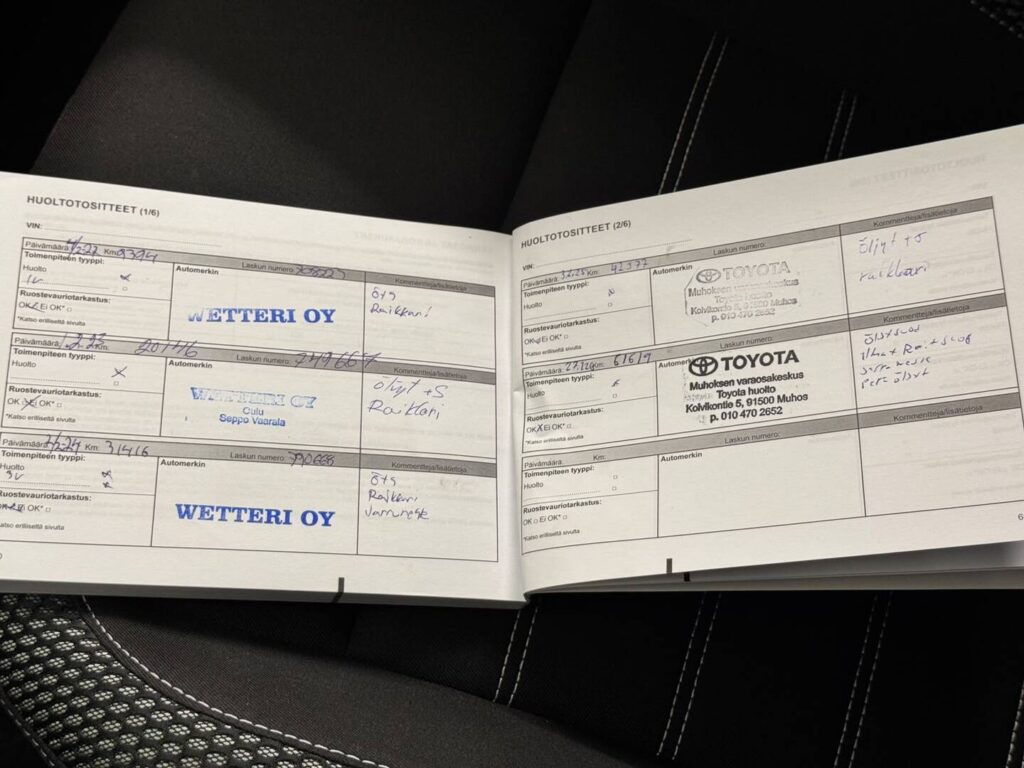 HUOLTOTOSITTEET (1/6)
VIN:
Päivämäärä: Km: 9394 Laskun numero: Kommentteja/lisätietoja
Toimenpiteen tyyppi:
Automerkin
Huolto
1v
Ruostevauriotarkastus:
OK Ei OK*
*Katso erilliseltä sivulta
WETTERI OY
Ö+S
Raikkari
Päivämäärä: Km: Laskun numero: Kommentteja/lisätietoja
Toimenpiteen tyyppi:
Automerkin
Huolto
Ruostevauriotarkastus:
OK Ei OK*
*Katso erilliseltä sivulta
WETTERI OY
Oulu
Seppo Vaarala
Öljyt +S
Raikkari
Päivämäärä: Km: 31416 Laskun numero: Kommentteja/lisätietoja
Toimenpiteen tyyppi:
Automerkin
Huolto
3v
Ruostevauriotarkastus:
OK Ei OK*
*Katso erilliseltä sivulta
WETTERI OY
Ö+S
Raikkari
HUOLTOTOSITTEET (2/6)
VIN:
Päivämäärä: 3.2.25 Km: 42377 Laskun numero: Kommentteja/lisätietoja
Toimenpiteen tyyppi:
Automerkin
Huolto
Ruostevauriotarkastus:
OK Ei OK*
*Katso erilliseltä sivulta
TOYOTA
Muhoksen varaosakeskus
Toyota huolto
Koivikontie 5, 91500 Muhos
p. 010 470 2652
Öljyt +S
raikkari
Päivämäärä: Km: Laskun numero: Kommentteja/lisätietoja
Toimenpiteen tyyppi:
Automerkin
Huolto
Ruostevauriotarkastus:
OK Ei OK*
*Katso erilliseltä sivulta
TOYOTA
Muhoksen varaosakeskus
Toyota huolto
Koivikontie 5, 91500 Muhos
p. 010 470 2652
Päivämäärä: Km: Laskun numero: Kommentteja/lisätietoja
Toimenpiteen tyyppi:
Automerkin
Huolto
Ruostevauriotarkastus:
OK Ei OK*
*Katso erilliseltä sivulta
6